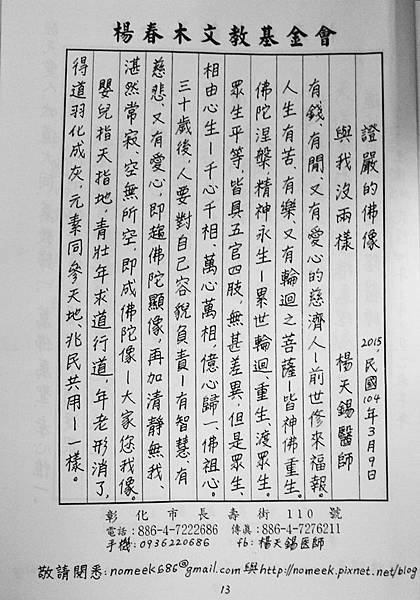 楊春木文教基金會
證嚴的佛像
與我沒兩樣
楊天錫醫師
2015,民國104年3月9日
有錢有閒、又有愛心的慈濟人—前世修來福報。
人生有苦、有樂又有輪迴之菩薩—皆神佛重生。
佛陀涅槃、精神永生—累世輪迴、重生、渡眾生。
眾生平等,皆具五官四肢,無甚差異,但是眾生、
相由心生—千心千相、萬心萬相,億心歸一、佛祖心。
三十歲後,人要對自己容貌負責—有智慧、有
慈悲、又有愛心,即趨佛陀顯像,再加清靜無我、
湛然常寂、空無所空,即成佛陀像—大家您我像。
嬰兒指天指地,青壯年求道行道,年老形消了,
得道羽化成灰,元素同參天地、兆民共用—一樣。
彰化市長壽街110號
電話:886-4-7222686 傳真:886-4-7276211
手機:0936220686 fb:楊天錫医師
敬請閱悉:nomeek686@gmail.com與http://nomeek.pixnet.net/blog
13